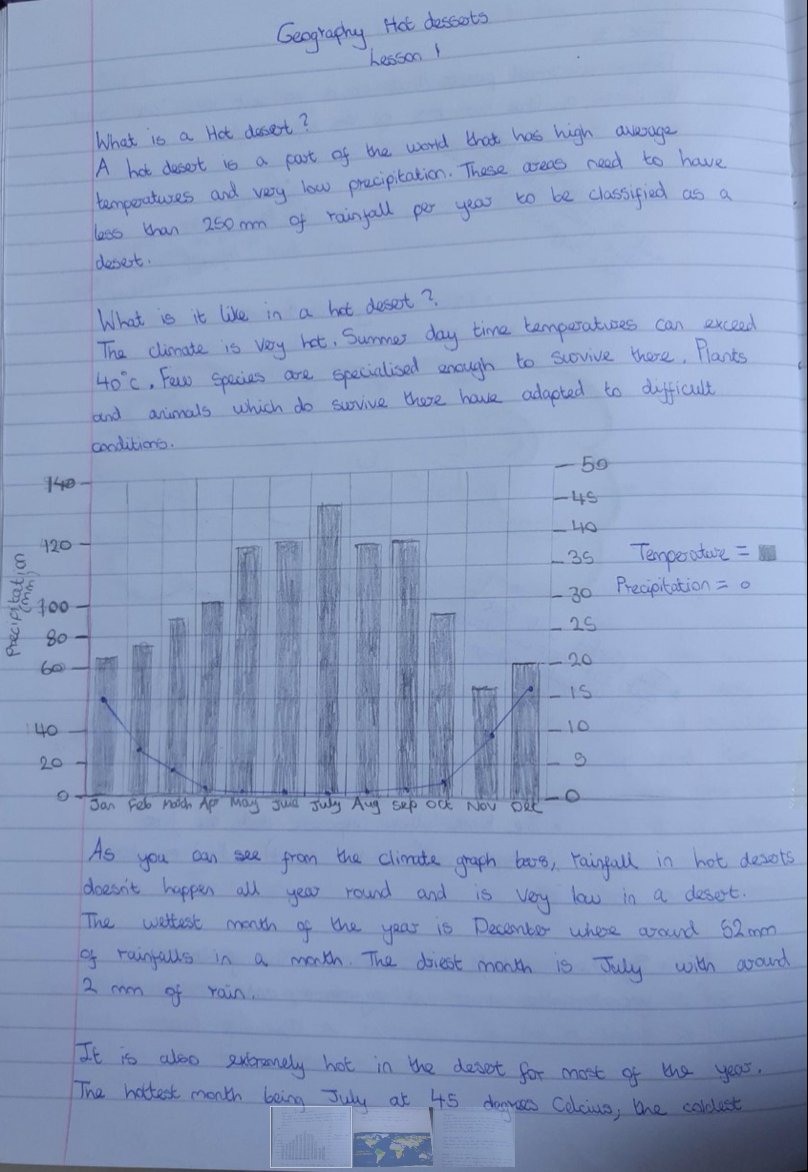 Geography Hot desserts
Lesson 1
What is a Hot desert?
A hot desert is a part of the world that has high average
temperatures and very low precipitation. These areas need to have
less than 250mm of rainfall per year to be classified as a
desert.
What is it like in a hot desert?
The climate is very hot. Summer day time temperatures can exceed
40°c. Few species are specialised enough to survive there. Plants
and animals which do survive there have adapted to difficult
conditions.
Precipitation
(mm)
140
120
100
80
60
40
20
0
50
45
40
35
30
25
20
15
10
5
0
Temperature =
Precipitation = o
Jan Feb March Apr May July Aug Sep Oct Nov Dec
As you can see from the climate graph bars, rainfall in hot deserts
doesn't happen all year round and is very low in a desert.
The wettest month of the year is December where around 52mm
of rainfalls in a month. The driest month is July with around
2 mm of rain.
It is also extremely hot in the desert for most of the year.
The hottest month being July at 45 degrees Celcius, the coldest